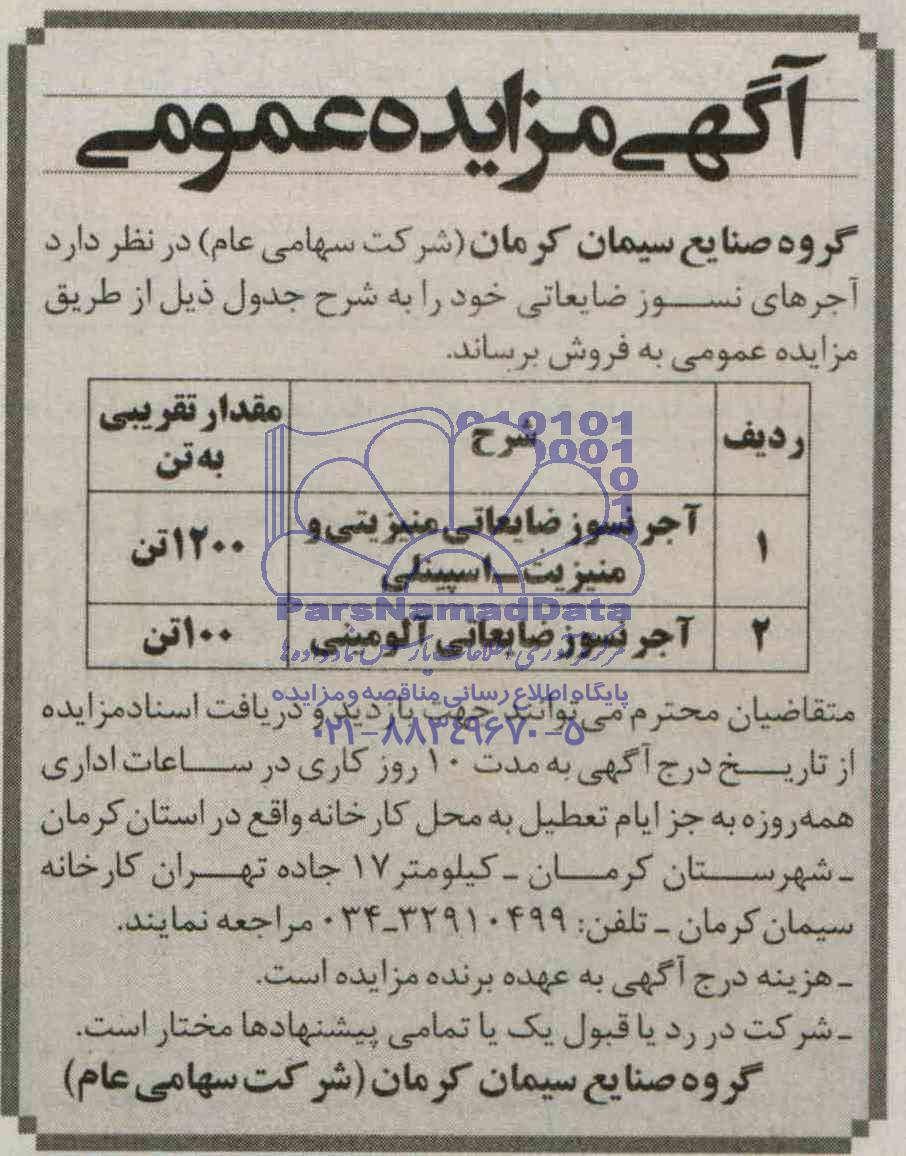 آگهی مزایده عمومی
گروه صنایع سیمان کرمان (شرکت سهامی عام) در نظر دارد
آجرهای نسوز ضایعاتی خود را به شرح جدول ذیل از طریق
مزایده عمومی به فروش برساند.
ردیف شرح مقدار تقریبی به تن
۱ آجر نسوز ضایعاتی منیزیتی و منیزیت ـ اسپینلی ۱۲۰۰ تن
۲ آجر نسوز ضایعاتی آلومینی ۱۰۰ تن
متقاضیان محترم می‌توانند جهت بازدید و دریافت اسناد مزایده
از تاریخ درج آگهی به مدت ۱۰ روز کاری در ساعات اداری
همه روزه به جز ایام تعطیل به محل کارخانه واقع در استان کرمان
ـ شهرستان کرمان ـ کیلومتر ۱۷ جاده تهران کارخانه
سیمان کرمان ـ تلفن: ۳۲۹۱۰۴۹۹ـ۰۳۴ مراجعه نمایند.
ـ هزینه درج آگهی به عهده برنده مزایده است.
ـ شرکت در رد یا قبول یک یا تمامی پیشنهادها مختار است.
گروه صنایع سیمان کرمان (شرکت سهامی عام)
ParsNamadData
پایگاه اطلاع رسانی مناقصه و مزایده
۰۲۱-۸۸۳۴۹۶۷۰-۵